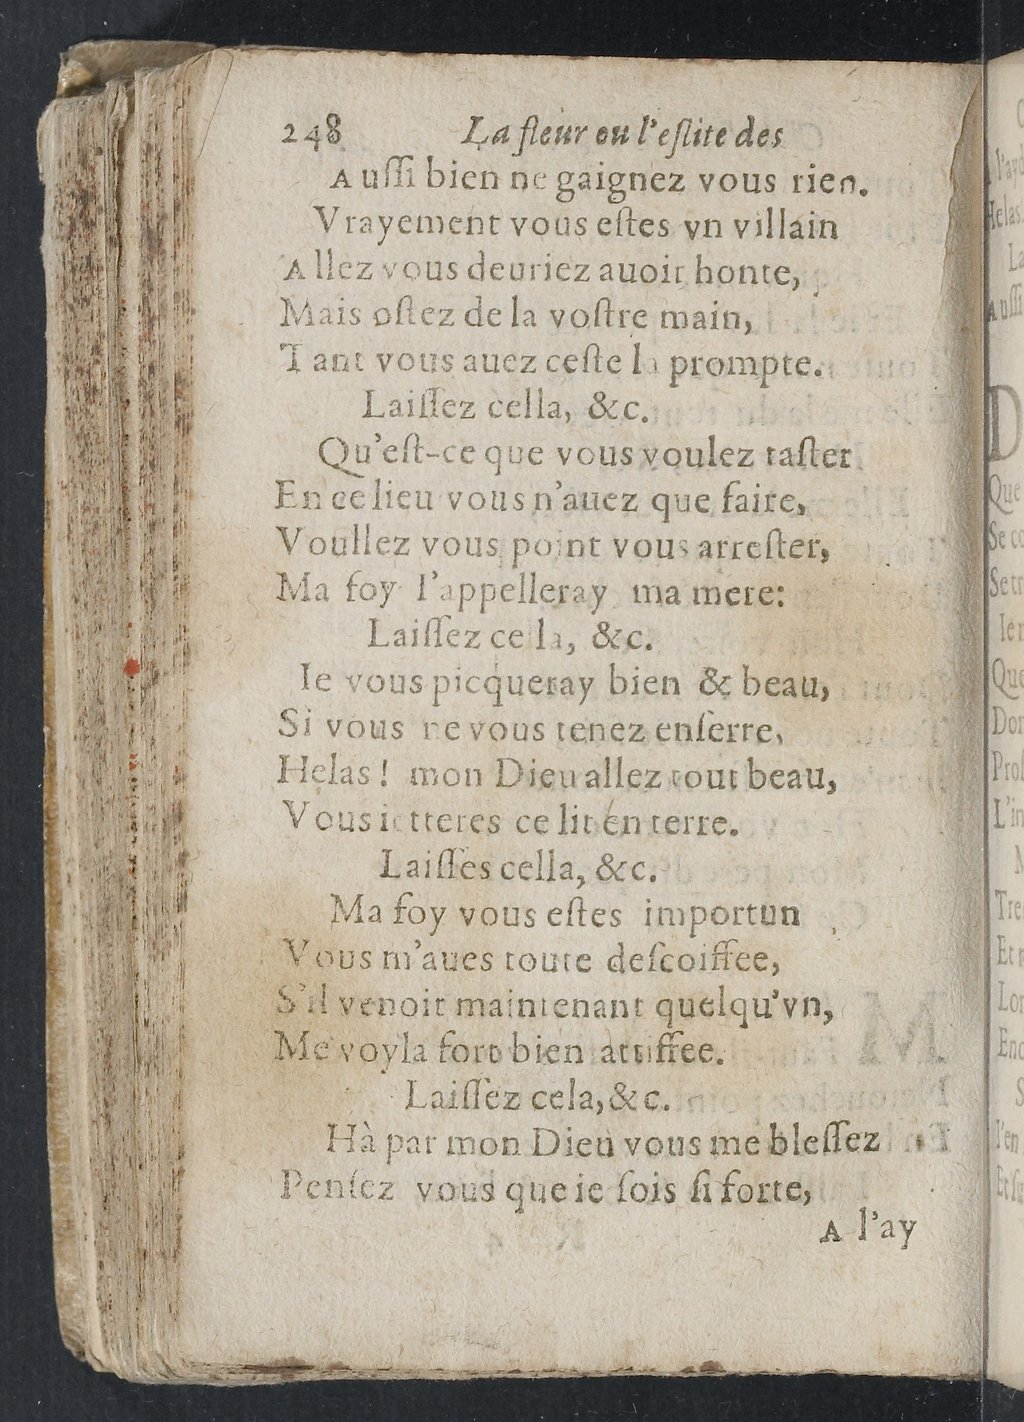 248 La fleur ou l'eſlite des
Auſſi bien ne gaignez vous rien.
Vrayement vous eſtes vn villain
Allez vous deuriez auoir honte,
Mais oſtez de la voſtre main,
Tant vous auez ceſte la prompte.
Laiſſez cella, &c.
Qu'eſt-ce que vous voulez taſter
En ce lieu vous n'auez que faire,
Voullez vous point vous arreſter,
Ma foy l'appelleray ma mere:
Laiſſez cela, &c.
Ie vous picqueray bien & beau,
Si vous ne vous tenez enſerre,
Helas! mon Dieu allez tout beau,
Vous ietteres ce lit en terre.
Laiſſes cella, &c.
Ma foy vous eſtes importun
Vous m'aues toute deſcoiffee,
S'il venoit maintenant quelqu'vn,
Me voyla fort bien attiffee.
Laiſſez cela, &c.
Hà par mon Dieu vous me bleſſez
Penſez vous que ie ſois ſi forte,
A l'ay